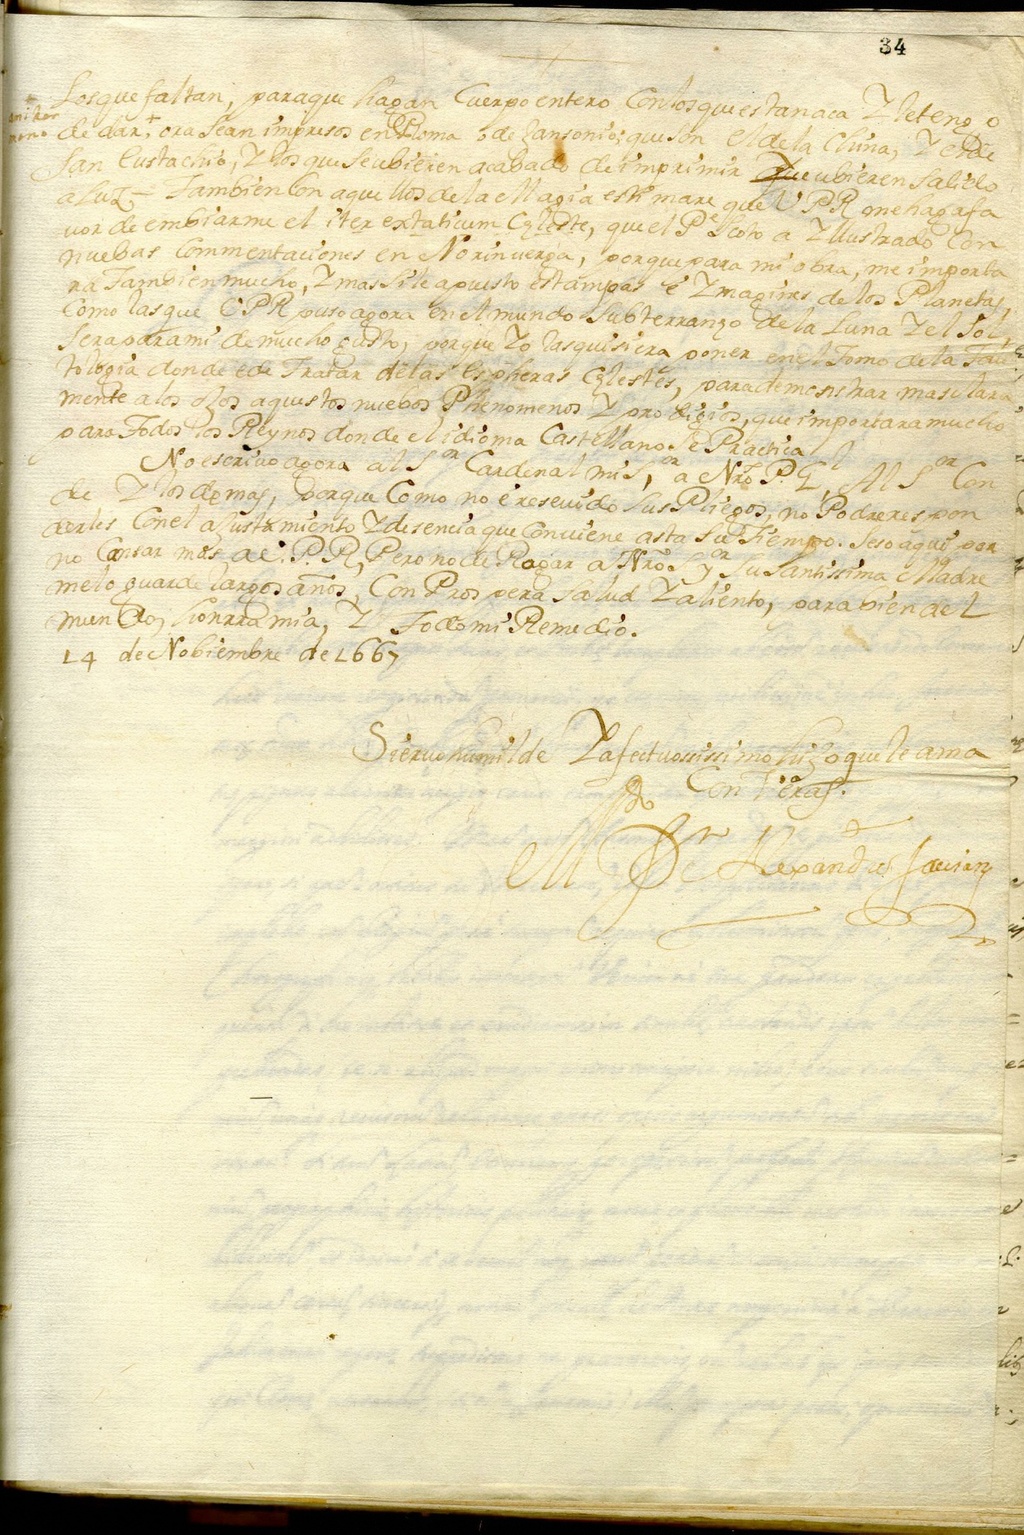 34
Los que faltan, paraque hagan Cuerpo entero Conlosque estan aca Y le tengo
a mi her
mano
de dar, + ora sean impresos en Roma, o de Jansonio; que son el de la China, Y el de
San Eustachio, Y los que se ubieren acabado de imprimir Que ubieren salido
a luz – Tambien Con aquellos de la Magia estimare que V P R me haga fa
vor de embiarme el iter extaticum Cęleste, que el Pe Scoto a Yllustrado Con
nuebas Commentaciones en Norinverga, porque para mi obra, me importa
ra Tambien mucho, Y mas si le a puesto estampas é Ymagines de los Planetas,
Como las que V P R puso agora en el mundo Subterraneo de la Luna Y el Sol,
Sera para mi de mucho gusto, porque Yo las quisiera poner en el Tomo de la
tologia donde e de Tratar de las Espheras Cęlestes, para demonstrar mas clara
mente a los ojos aquestos nuebos Phenomenos Y prodigios, que importara mucho
para Todos los Reynos donde el idioma Castellano se Practica
No escrivo agora al Sor Cardenal mi Sor, a Nro P. Gl, Al Sor Con
de Y los demas, porque Como no é resevido sus Pliegos, no Podre res pon
derles Con el a Justamiento Y desencia que Conviene asta su Tiempo. Seso aqui por
no Cansar mas a V. P. R, Pero no de Rogar a Nro Sor y Su Santissima Madre
me lo guarde largos años, Con Prospera salud Y aliento, para vien del
mundo, honrra mia, Y Todo mi Remedio.
14 de Nobiembre de 1667
Siervo humilde Y afectuossissimo hijo que le ama
Con Veras.
Alexandro Favian